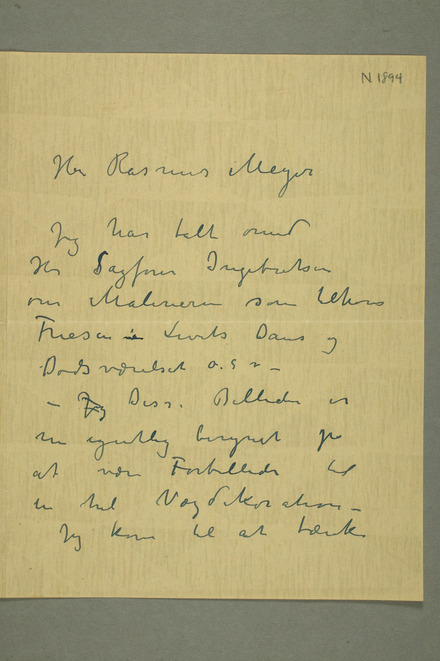 N 1894
Herr Rasmus Meyer
Jeg har talt med
Hr Sagfører Ingebretsen
om Malerierne som
Frisen Livets Dans og
Dødsværelset o.s.v –
– Jeg Disse Billeder er
nu egentlig beregnet på
at være Forbilleder til
en hel Vægdekoration –
Jeg kom til at tænke